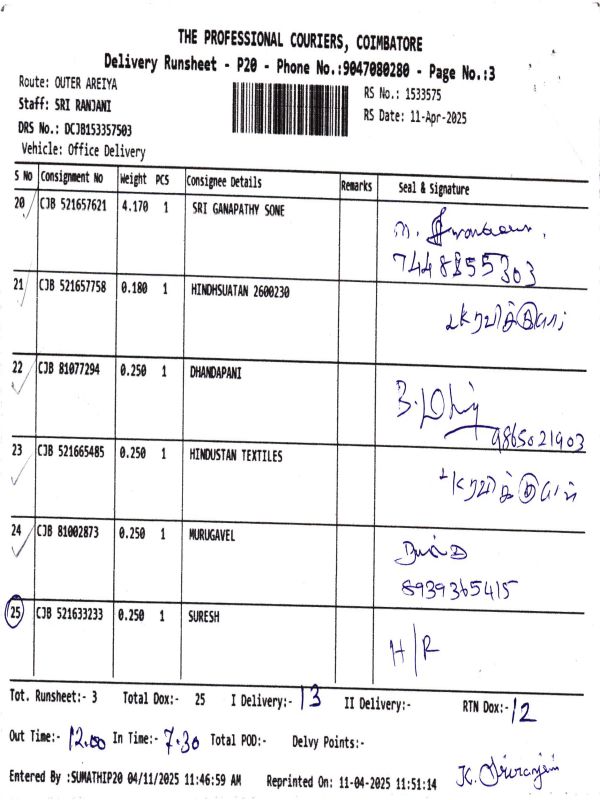 THE PROFESSIONAL COURIERS, COIMBATORE
Delivery Runsheet - P20 - Phone No.:9047080280 - Page No.:3
Route: OUTER AREIYA
RS No.: 1533575
Staff: SRI RANJANI
RS Date: 11-Apr-2025
DRS No.: DCJB153357503
Vehicle: Office Delivery
S No Consignment No Weight PCS Consignee Details Remarks Seal & Signature
20 CJB 521657621 4.170 1 SRI GANAPATHY SONE
7448855303
21 CJB 521657758 0.180 1 HINDHSUATAN 2600230
22 CJB 81077294 0.250 1 DHANDAPANI
9865021903
23 CJB 521665485 0.250 1 HINDUSTAN TEXTILES
24 CJB 81002873 0.250 1 MURUGAVEL
8939365415
25 CJB 521633233 0.250 1 SURESH
H/R
Tot. Runsheet:- 3 Total Dox:- 25 I Delivery:- 13 II Delivery:- RTN Dox:- 12
Out Time:- 12.00 In Time:- 7.30 Total POD:- Delvy Points:-
Entered By :SUMATHIP20 04/11/2025 11:46:59 AM Reprinted On: 11-04-2025 11:51:14